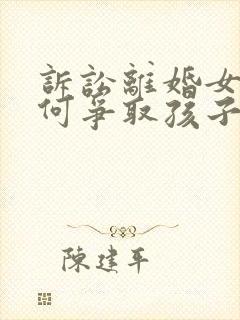 訴訟離婚女
何爭取孩子
陳建平